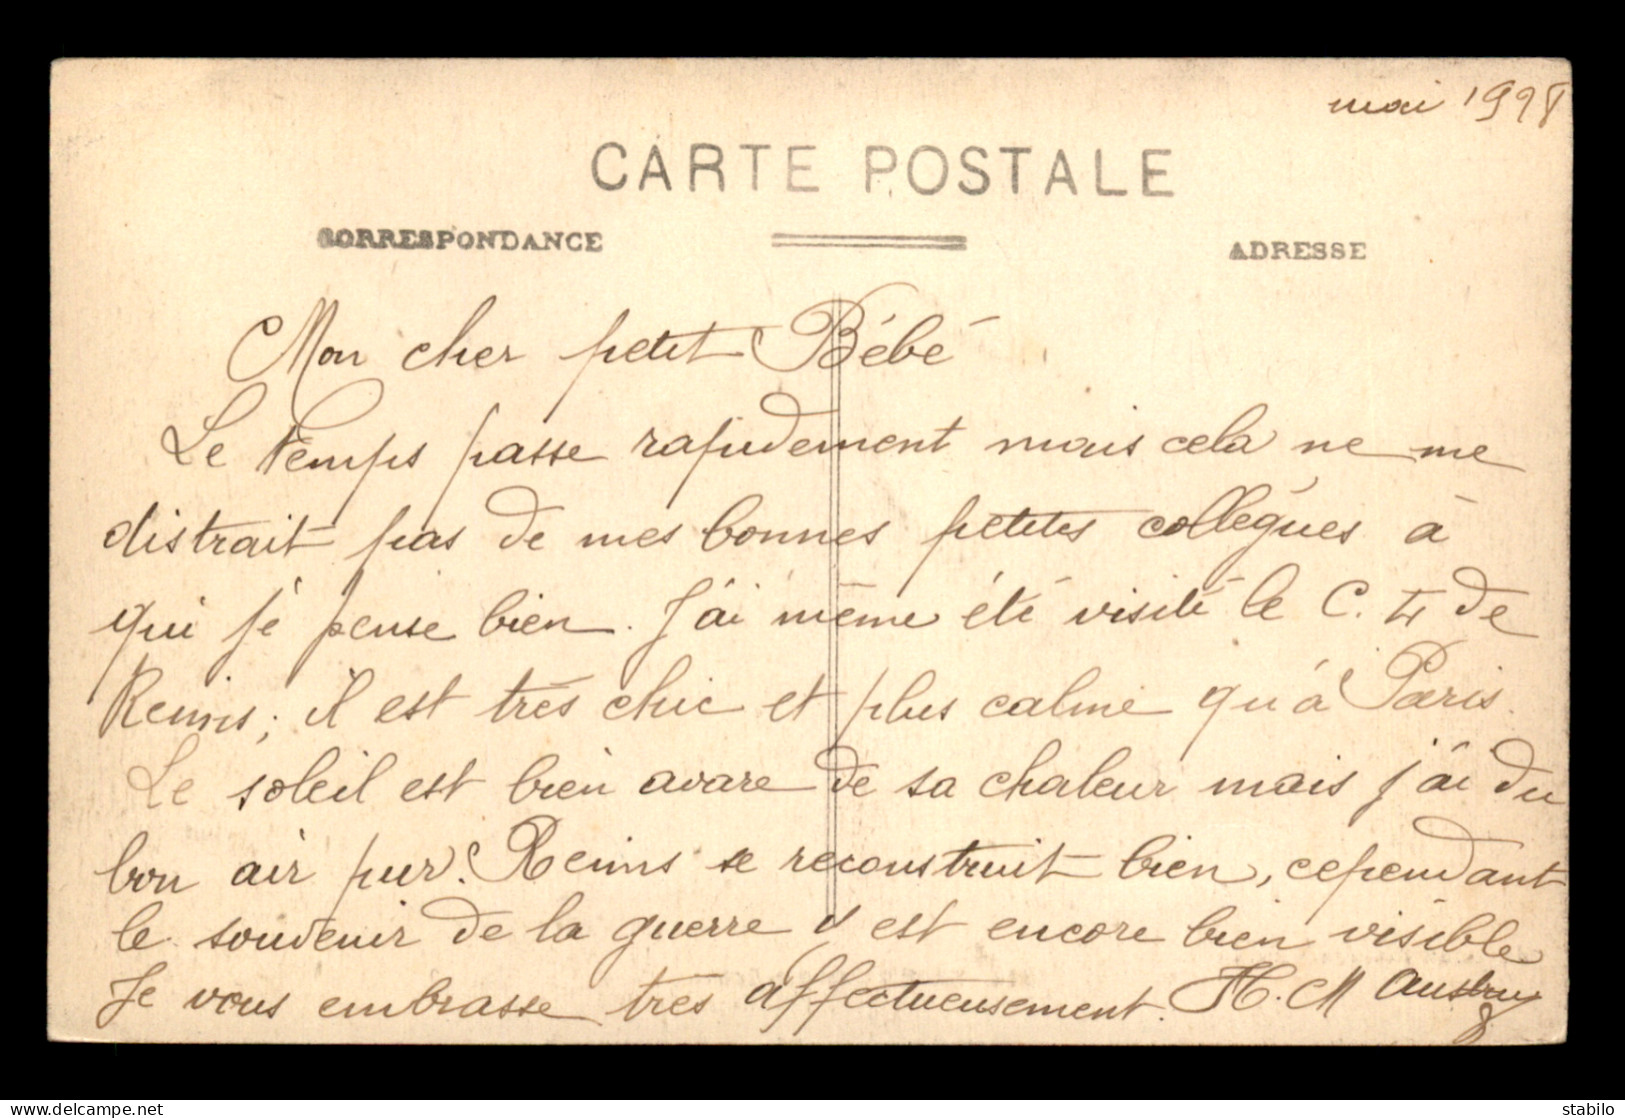 mai 1928
CARTE POSTALE
CORRESPONDANCE
ADRESSE
Mon cher petit Bébé
Le temps passe rapidement mais cela ne me
distrait pas de mes bonnes petites collègues à
qui je pense bien. J'ai même été visité le C. T de
Reims ; il est très chic et plus calme qu'à Paris.
Le soleil est bien avare de sa chaleur mais j'ai du
bon air pur. Reims se reconstruit bien, cependant
le souvenir de la guerre y est encore bien visible
Je vous embrasse très affectueusement. H. M
stabilo